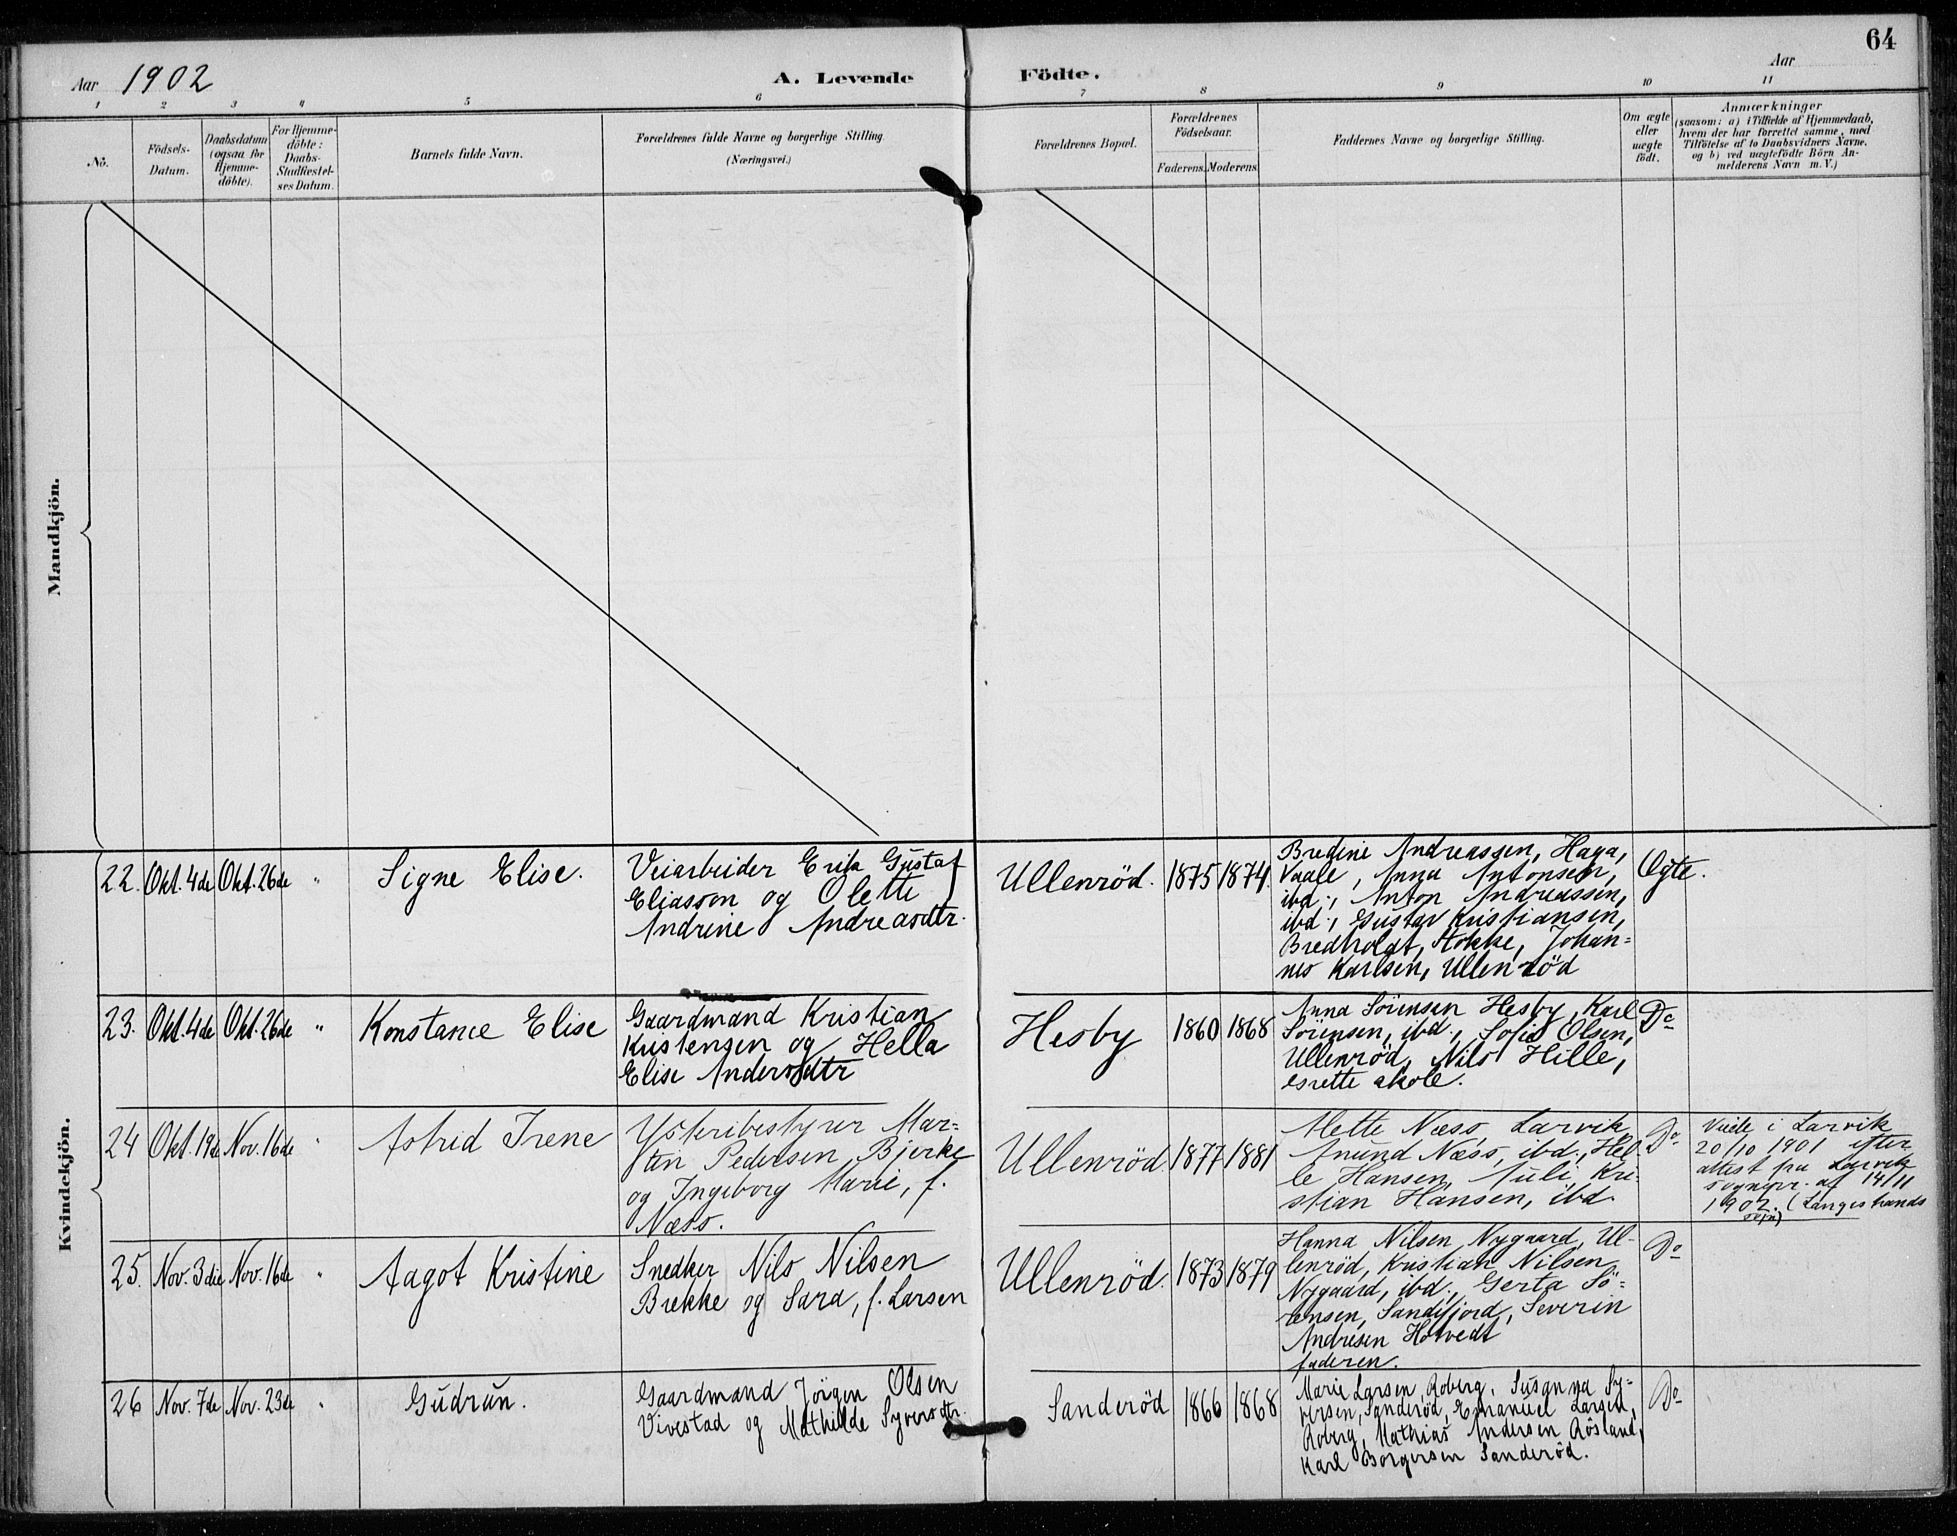 64
Aar 1902 A. Levende Födte. Aar
1 2 3 4 5 6 7 8 9 10 11
No.
Födsels-
Datum.
Daabsdatum
(ogsaa for
Hjemme-
döbte).
For Hjemme-
döbte:
Daabs-
Stadfæstel-
ses Datum.
Barnets fulde Navn.
Forældrenes fulde Navne og borgerlige Stilling.
(Næringsvei.)
Forældrenes Bopæl.
Forældrenes
Födselsaar.
Faderens. Moderens.
Faddernes Navne og borgerlige Stilling.
Om ægte
eller
uægte
født.
Anmærkninger
(saasom: a) i Tilfælde af Hjemmedaab,
hvem der har forrettet samme, med
Tilföielse af to Daabsvidners Navne.
og b) ved uægtefödte Börn An-
melderens Navn m. V.)
Mandkjön.
Kvindekjön.
22. Okt. 4de Okt. 26de "
Signe Elise.
Veiarbeider Erik Gustaf
Eliasson og Olette
Andrine Andreasdtr.
Ullenröd. 1875 1874
Bredine Andreassen, Haga,
Vaale, Anna Antonsen,
ibd., Anton Andreassen,
ibd., Gustav Kristiansen,
Bredholdt, Stokke, Johan=
nes Karlsen, Ullenröd
Ægte.
23. Okt. 4de Okt. 26de "
Konstance Elise
Gaardmand Kristian
Kristensen og Hella
Elise Andersdtr
Hesby 1860 1868
Anna Sörensen Hesby, Karl
Sörensen, ibd., Sofie Olsen,
Ullenröd, Nils Hille,
skole.
Do
24 Okt. 19de Nov. 16de "
Astrid Irene
Ysteribestyrer Mar=
tin Pedersen Bjerke
og Ingeborg Marie, f.
Næss.
Ullenröd. 1877 1881
Mette Næss, Larvik
Anund Næss, ibd., Hel=
le Hansen, Auli, Kri=
stian Hansen, ibd.
Do
Viede i Larvik
20/10 1901 efter
attest fra Larvik
sognepr. af 14/11
1902. (Langestrands
sogn)
25. Nov. 3die Nov. 16de "
Aagot Kristine
Snedker Nils Nilsen
Brekke og Sara, f. Larsen
Ullenröd. 1873 1879
Hanna Nilsen Nygaard, Ul-
lenröd, Kristian Nilsen
Nygaard, ibd., Gerta Sö=
rensen, Sandefjord, Severin
Andresen Hotvedt
faderen.
Do
26 Nov. 7de Nov. 23de "
Gudrun.
Gaardmand Jörgen Olsen
Vivestad og Mathilde Syversdtr.
Sanderöd 1866 1868
Marie Larsen, Roberg, Susanna Sy=
versen, Sanderöd, Emanuel Larsen,
Roberg, Mathias Andersen Rösland,
Karl Borgersen Sanderöd.
Do